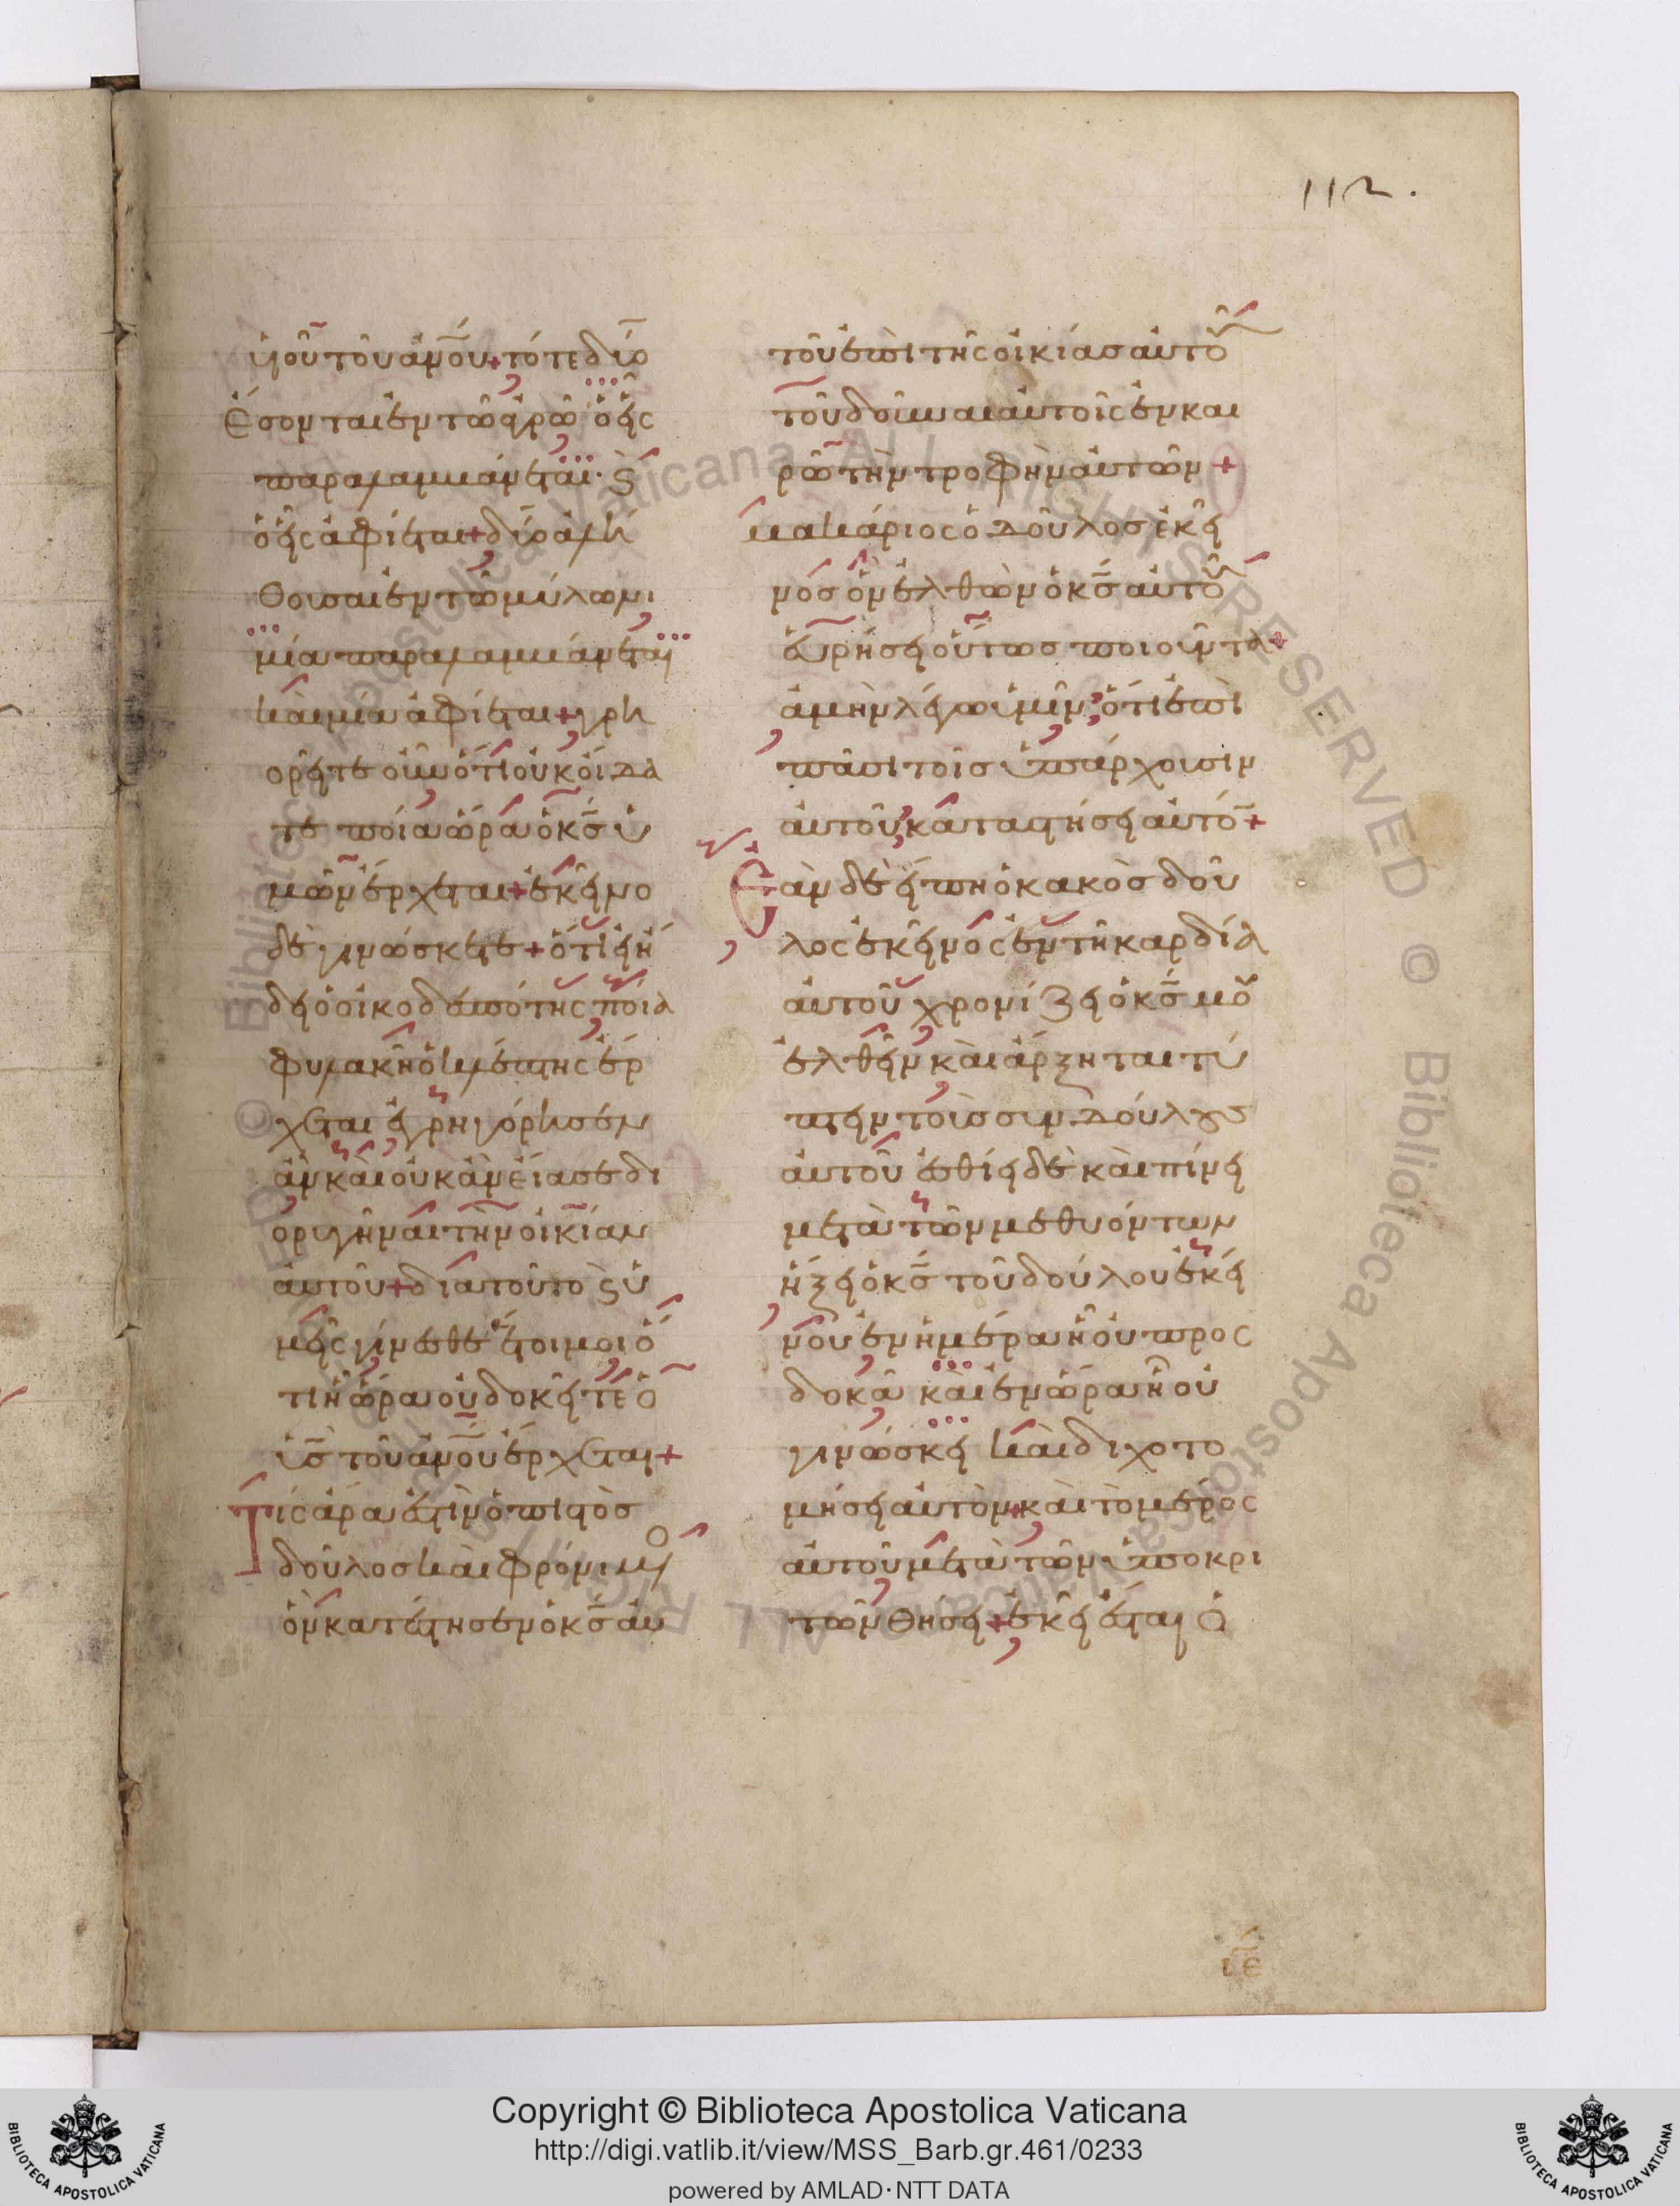 112.
ὑιοῦ τοῦ ἀν̅ο̅υ + τότε δύο
Ἔσονται ἐν τῶ ἀγρῶ ὁ εἷς
παραλαμβάνεται· ϛ
ὁ εἷς ἀφίεται + δύο ἀλή
θουσαι ἐν τῶ μύλωνι
μία παραλαμβάνεται
καὶ μία ἀφίεται + γρη
ορεῖτε οὖν ὅτι οὐκ οἴδα
τε ποία ὥρα ὁ κ̅ς̅ ὑ
μῶν ἔρχεται + ἐκεῖνο
δὲ γινώσκετε + ὅτι εἰ ἤ
δει ὁ οἰκοδεσπότης ποία
φυλακῆ ὁ κλέπτης ἔρ
χεται ἐγρηγόρησεν
ἂν καὶ οὐκ ἂν εἴασε δι
ορυγῆναι τὴν οἰκίαν
αὐτοῦ + διατοῦτο ϛ ὑ
μεῖς γίνεσθε ἕτοιμοι ὅ
τι ἧ ὥρα οὐ δοκεῖτε ὁ
υ̅ς̅ τοῦ ἀν̅ο̅υ ἔρχεται +
Τίς ἄρα ἐστὶν ὁ πιστὸσ
δοῦλοσ καὶ φρόνιμο
ὃν κατέστησεν ὁ κ̅ς̅ αὐ
τοῦ ἐπὶ τῆς οἰκίασ αὐτοῦ
τοῦ δοῦναι αὐτοῖς ἐν και
ρῶ τὴν τροφὴν αὐτῶν +
μακάριος ὁ δοῦλοσ ἐκεῖ
νοσ ὃν ἐλθὼν ὁ κ̅ς̅ αὐτοῦ
εὑρήσει οὕτωσ ποιοῦντα +
ἀμὴν λέγω ὑμῖν, ὅτι ἐπὶ
πᾶσι τοῖσ ὑπάρχουσιν
αὐτοῦ καταστήσει αὐτό̅ +
Ἐὰν δὲ εἴπη ὁ κακὸσ δοῦ
λος ἐκεῖνος ἐν τῆ καρδία
αὐτοῦ χρονίζει ὁ κ̅ς̅ μου
ἐλθεῖν καὶ ἄρξηται τύ
πτειν τοὺσ συνδούλουσ
αὐτοῦ ἐσθίει δὲ καὶ πίνει
μετὰ τῶν μεθυόντων
ἥξει ὁ κ̅ς̅ τοῦ δούλου ἐκεί
νου ἐν ἡμέρα ἧ οὐ προς
δοκᾶ καὶ ἐν ὥρα ἧ οὐ
γινώσκει καὶ διχοτο
μήσει αὐτὸν + καὶ τὸ μέρος
αὐτοῦ μετὰ τῶν ὑποκρι
τῶν θήσει + ἐκεῖ ἔσται ὁ
ιε
Copyright © Biblioteca Apostolica Vaticana
http://digi.vatlib.it/view/MSS_Barb.gr.461/0233
powered by AMLAD·NTT DATA
BIBLIOTECA APOSTOLICA VATICANA
BIBLIOTECA APOSTOLICA VATICANA